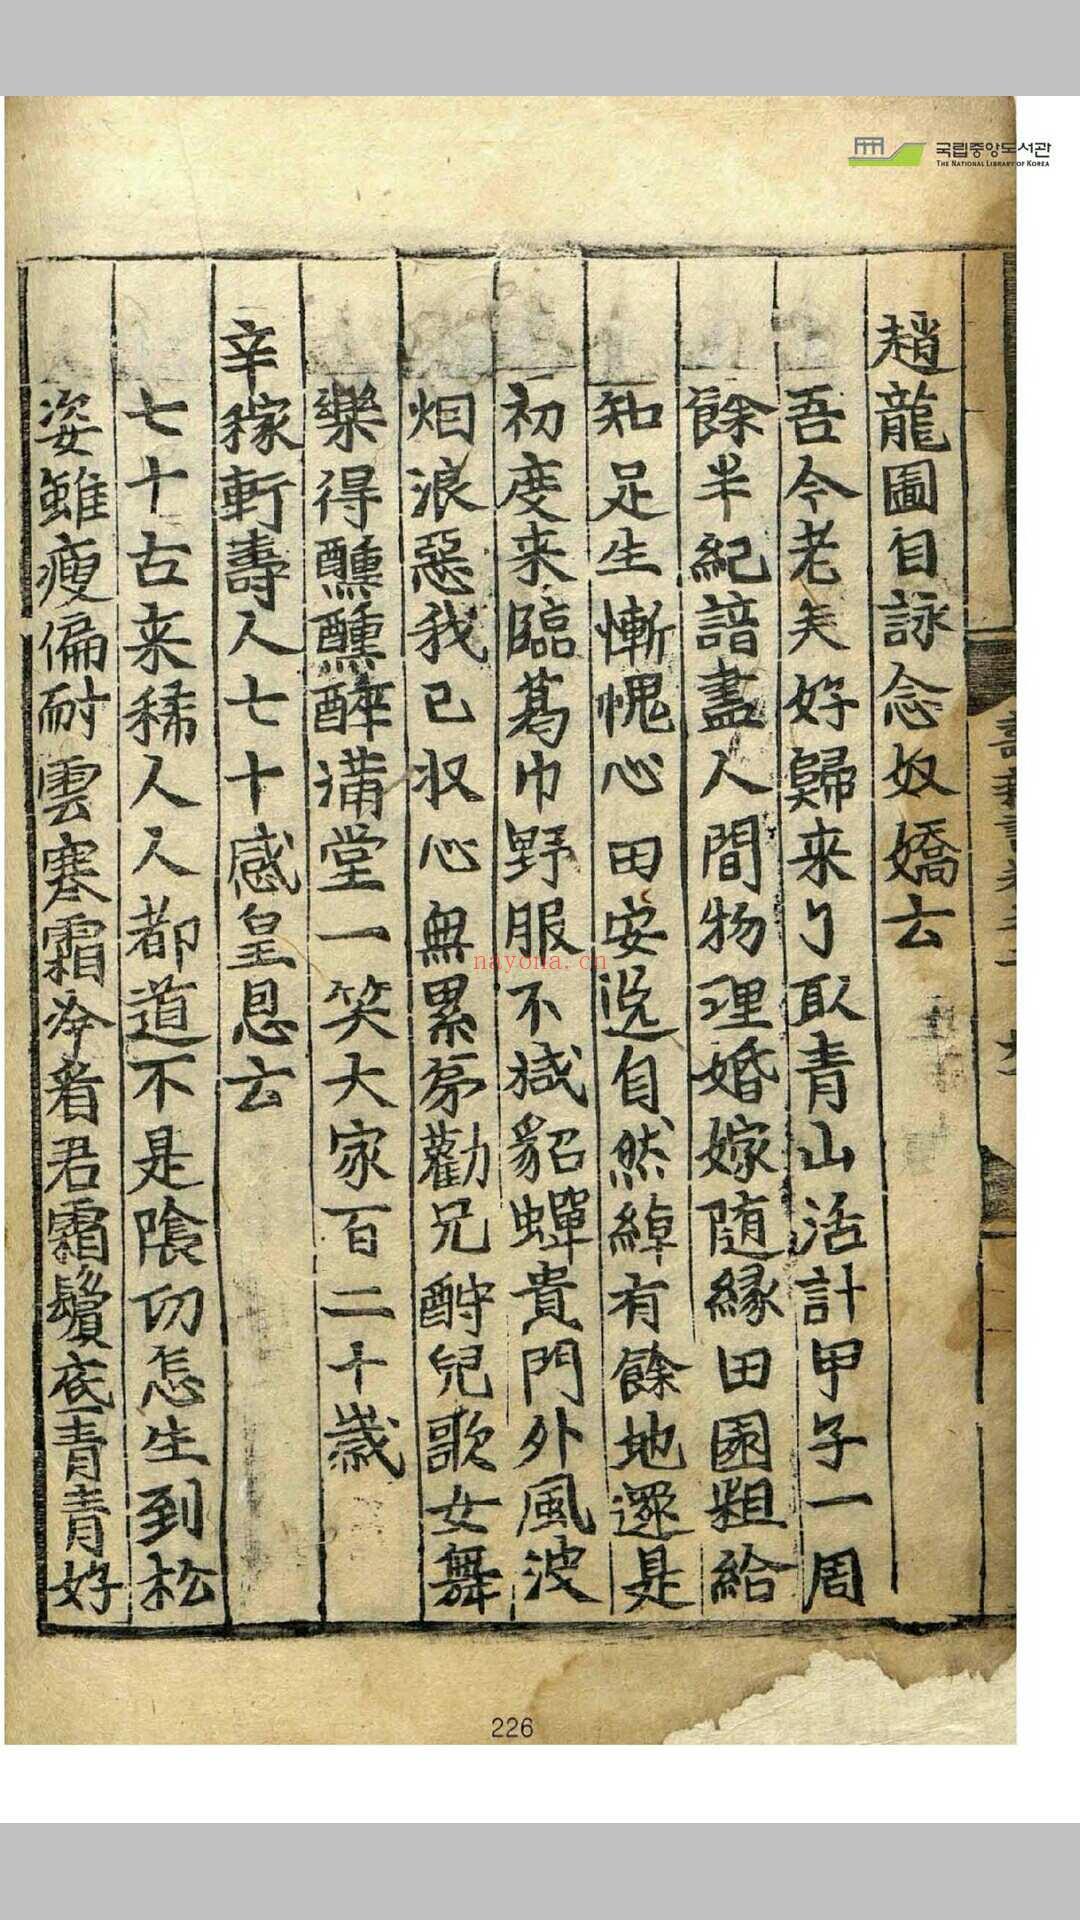 국립중앙도서관
THE NATIONAL LIBRARY OF KOREA
趙龍圖自詠念奴嬌云
吾今老矣好歸来了取青山活計甲子一周
餘半紀諳盡人間物理婚嫁随縁田園粗給
知足生慚愧心田安逸自然綽有餘地還是
初度来臨葛巾野服不減貂蟬貴門外風波
烟浪惡我已収心無累弟勸兄酧兒歌女舞
樂得醺醺醉滿堂一笑大家百二十歲
辛稼軒壽人七十感皇恩云
七十古来稀人人都道不是陰功怎生到松
姿雖瘦偏耐雲寒霜冷看君霜鬢底青青好
nayona.cn
226